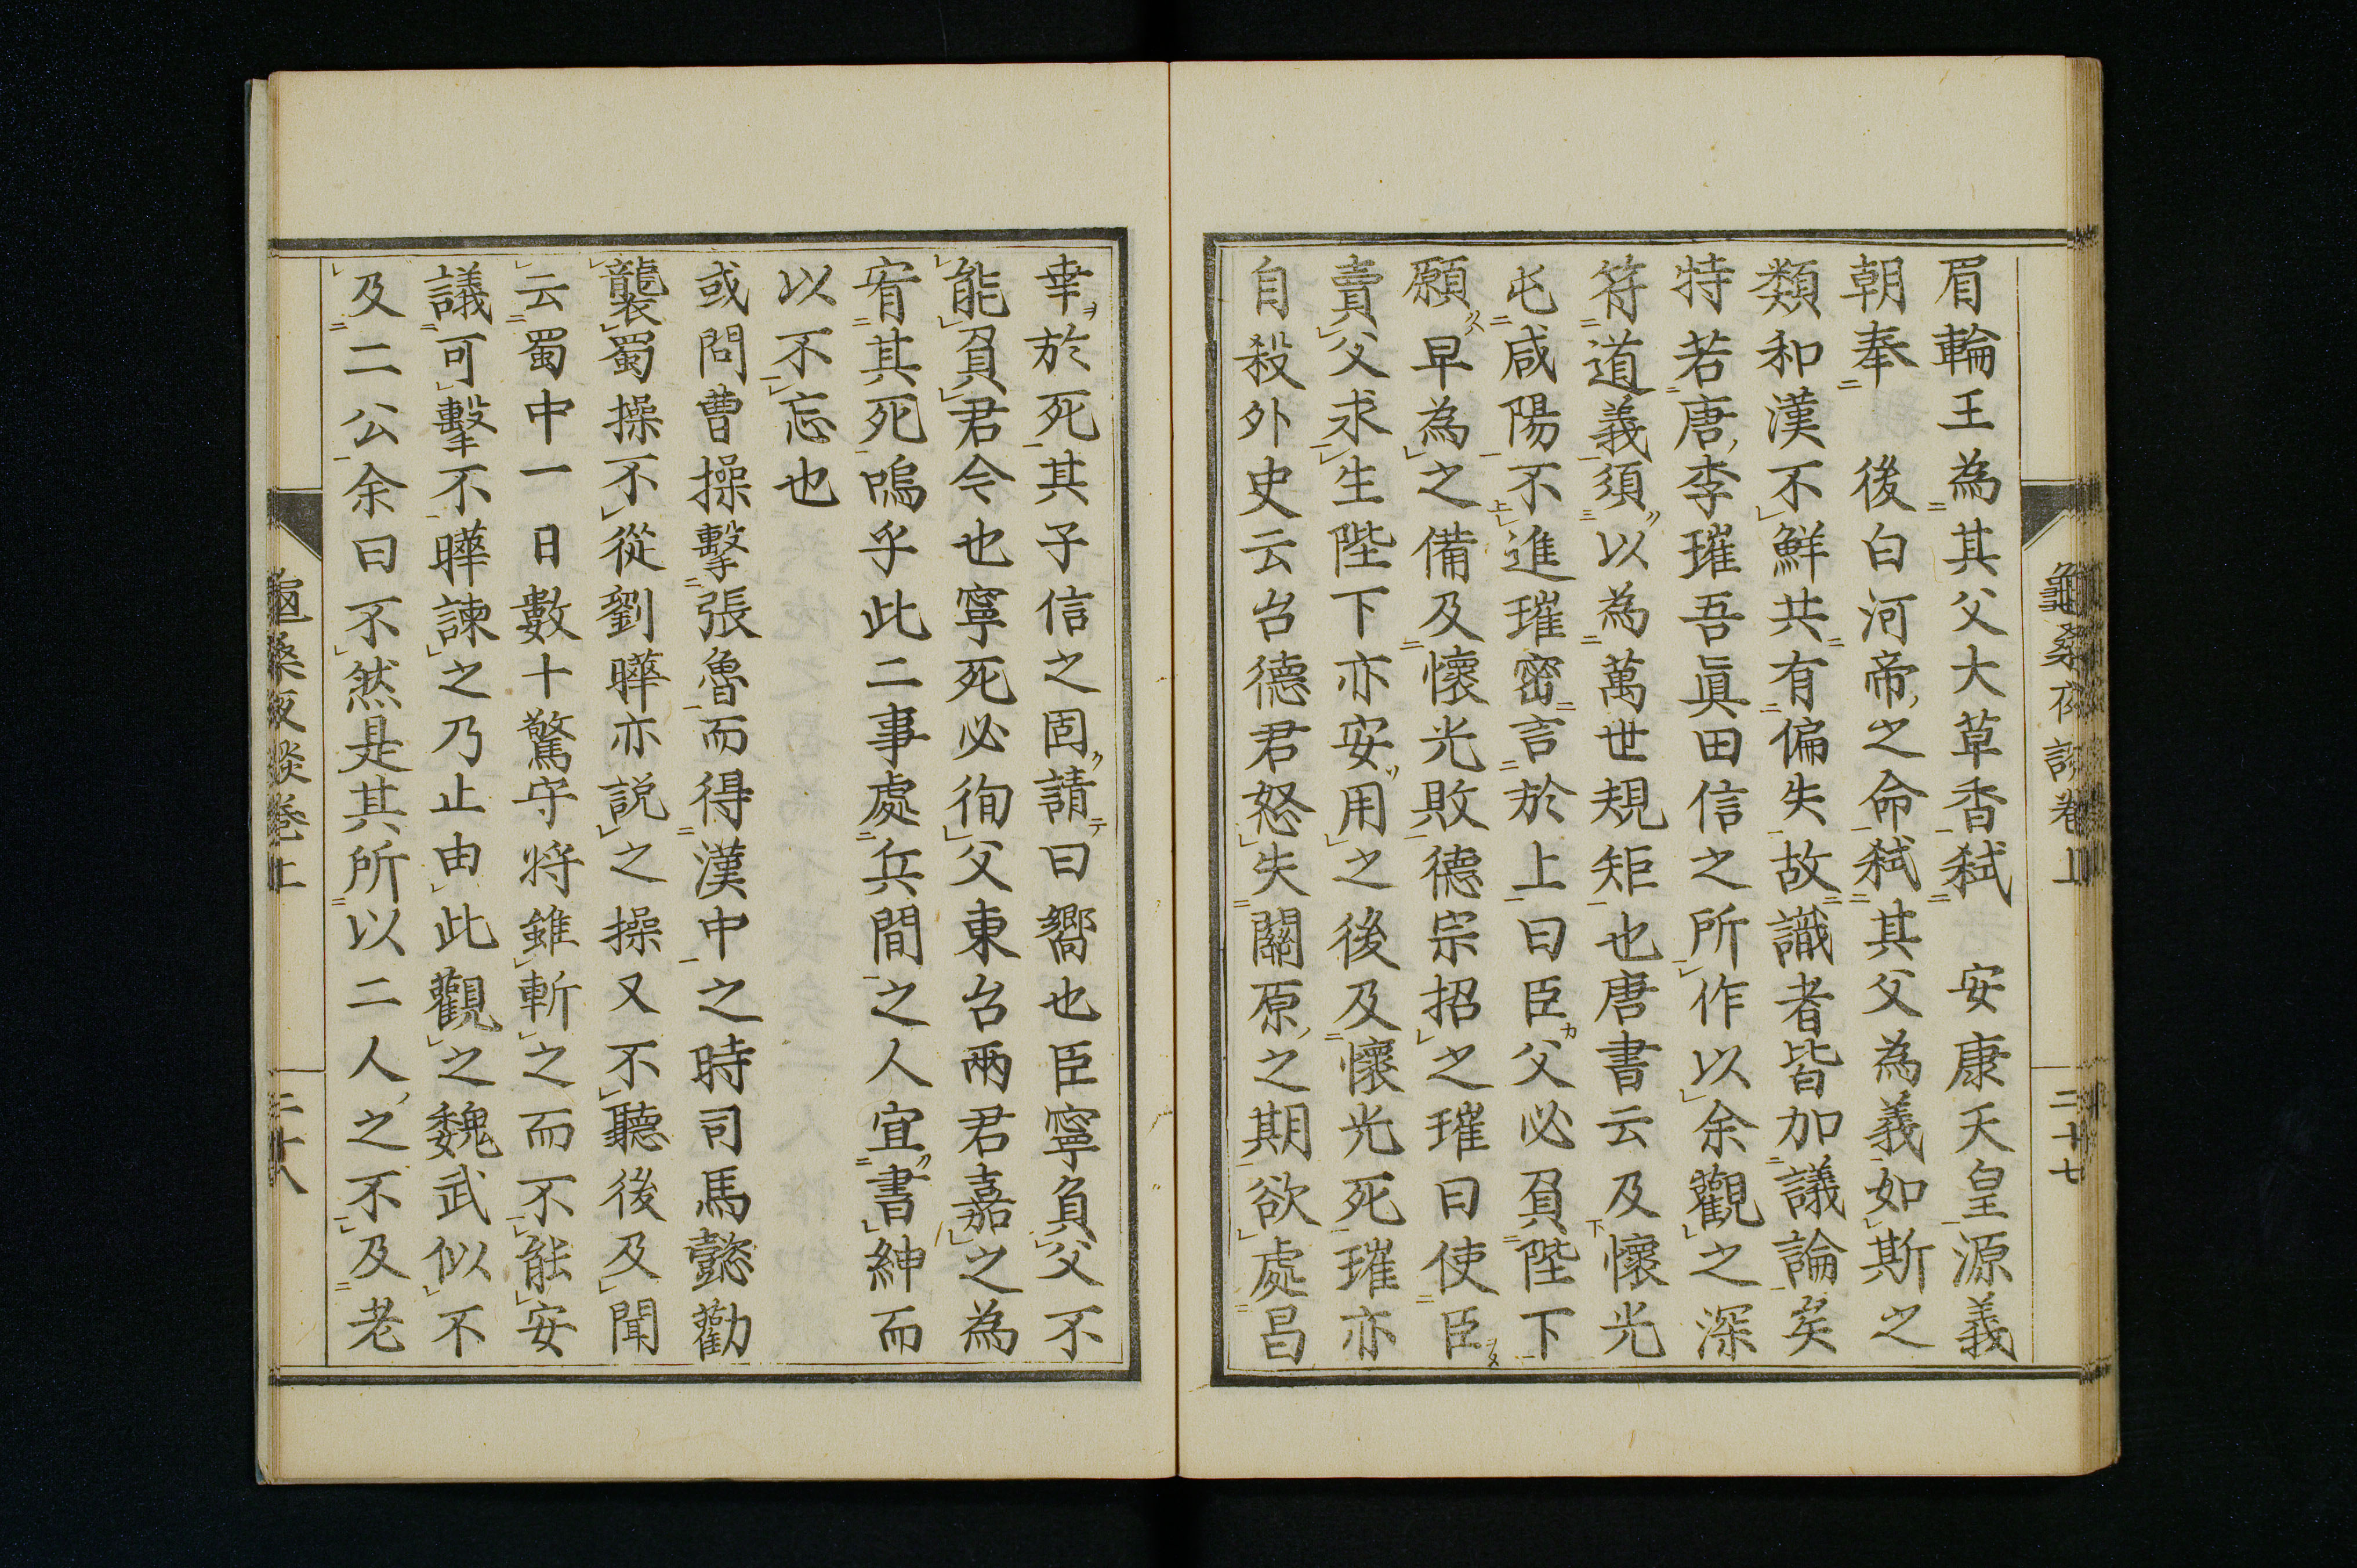 龜桑夜談卷上 二十七
眉輪王為其父大草香弑 安康天皇源義
朝奉 後白河帝之命弑其父為義如斯之
類和漢不鮮共有偏失故識者皆加議論矣
特若唐李璀吾眞田信之所作以余觀之深
符道義須以為萬世規矩也唐書云及懷光
屯咸陽不進璀密言於上曰臣父必負陛下
願早為之備及懷光敗德宗招之璀曰使臣
賣父求生陛下亦安用之後及懷光死璀亦
自殺外史云台德君怒失關原之期欲處昌
幸於死其子信之固請曰嚮也臣寧負父不
能負君今也寧死必徇父東台兩君嘉之為
宥其死嗚乎此二事處兵間之人宜書紳而
以不忘也
或問曹操擊張魯而得漢中之時司馬懿勸
襲蜀操不從劉曄亦説之操又不聽後及聞
云蜀中一日數十驚守將雖斬之而不能安
議可擊不曄諫之乃止由此觀之魏武似不
及二公余曰不然是其所以二人之不及老
龜桑夜談卷上 二十八